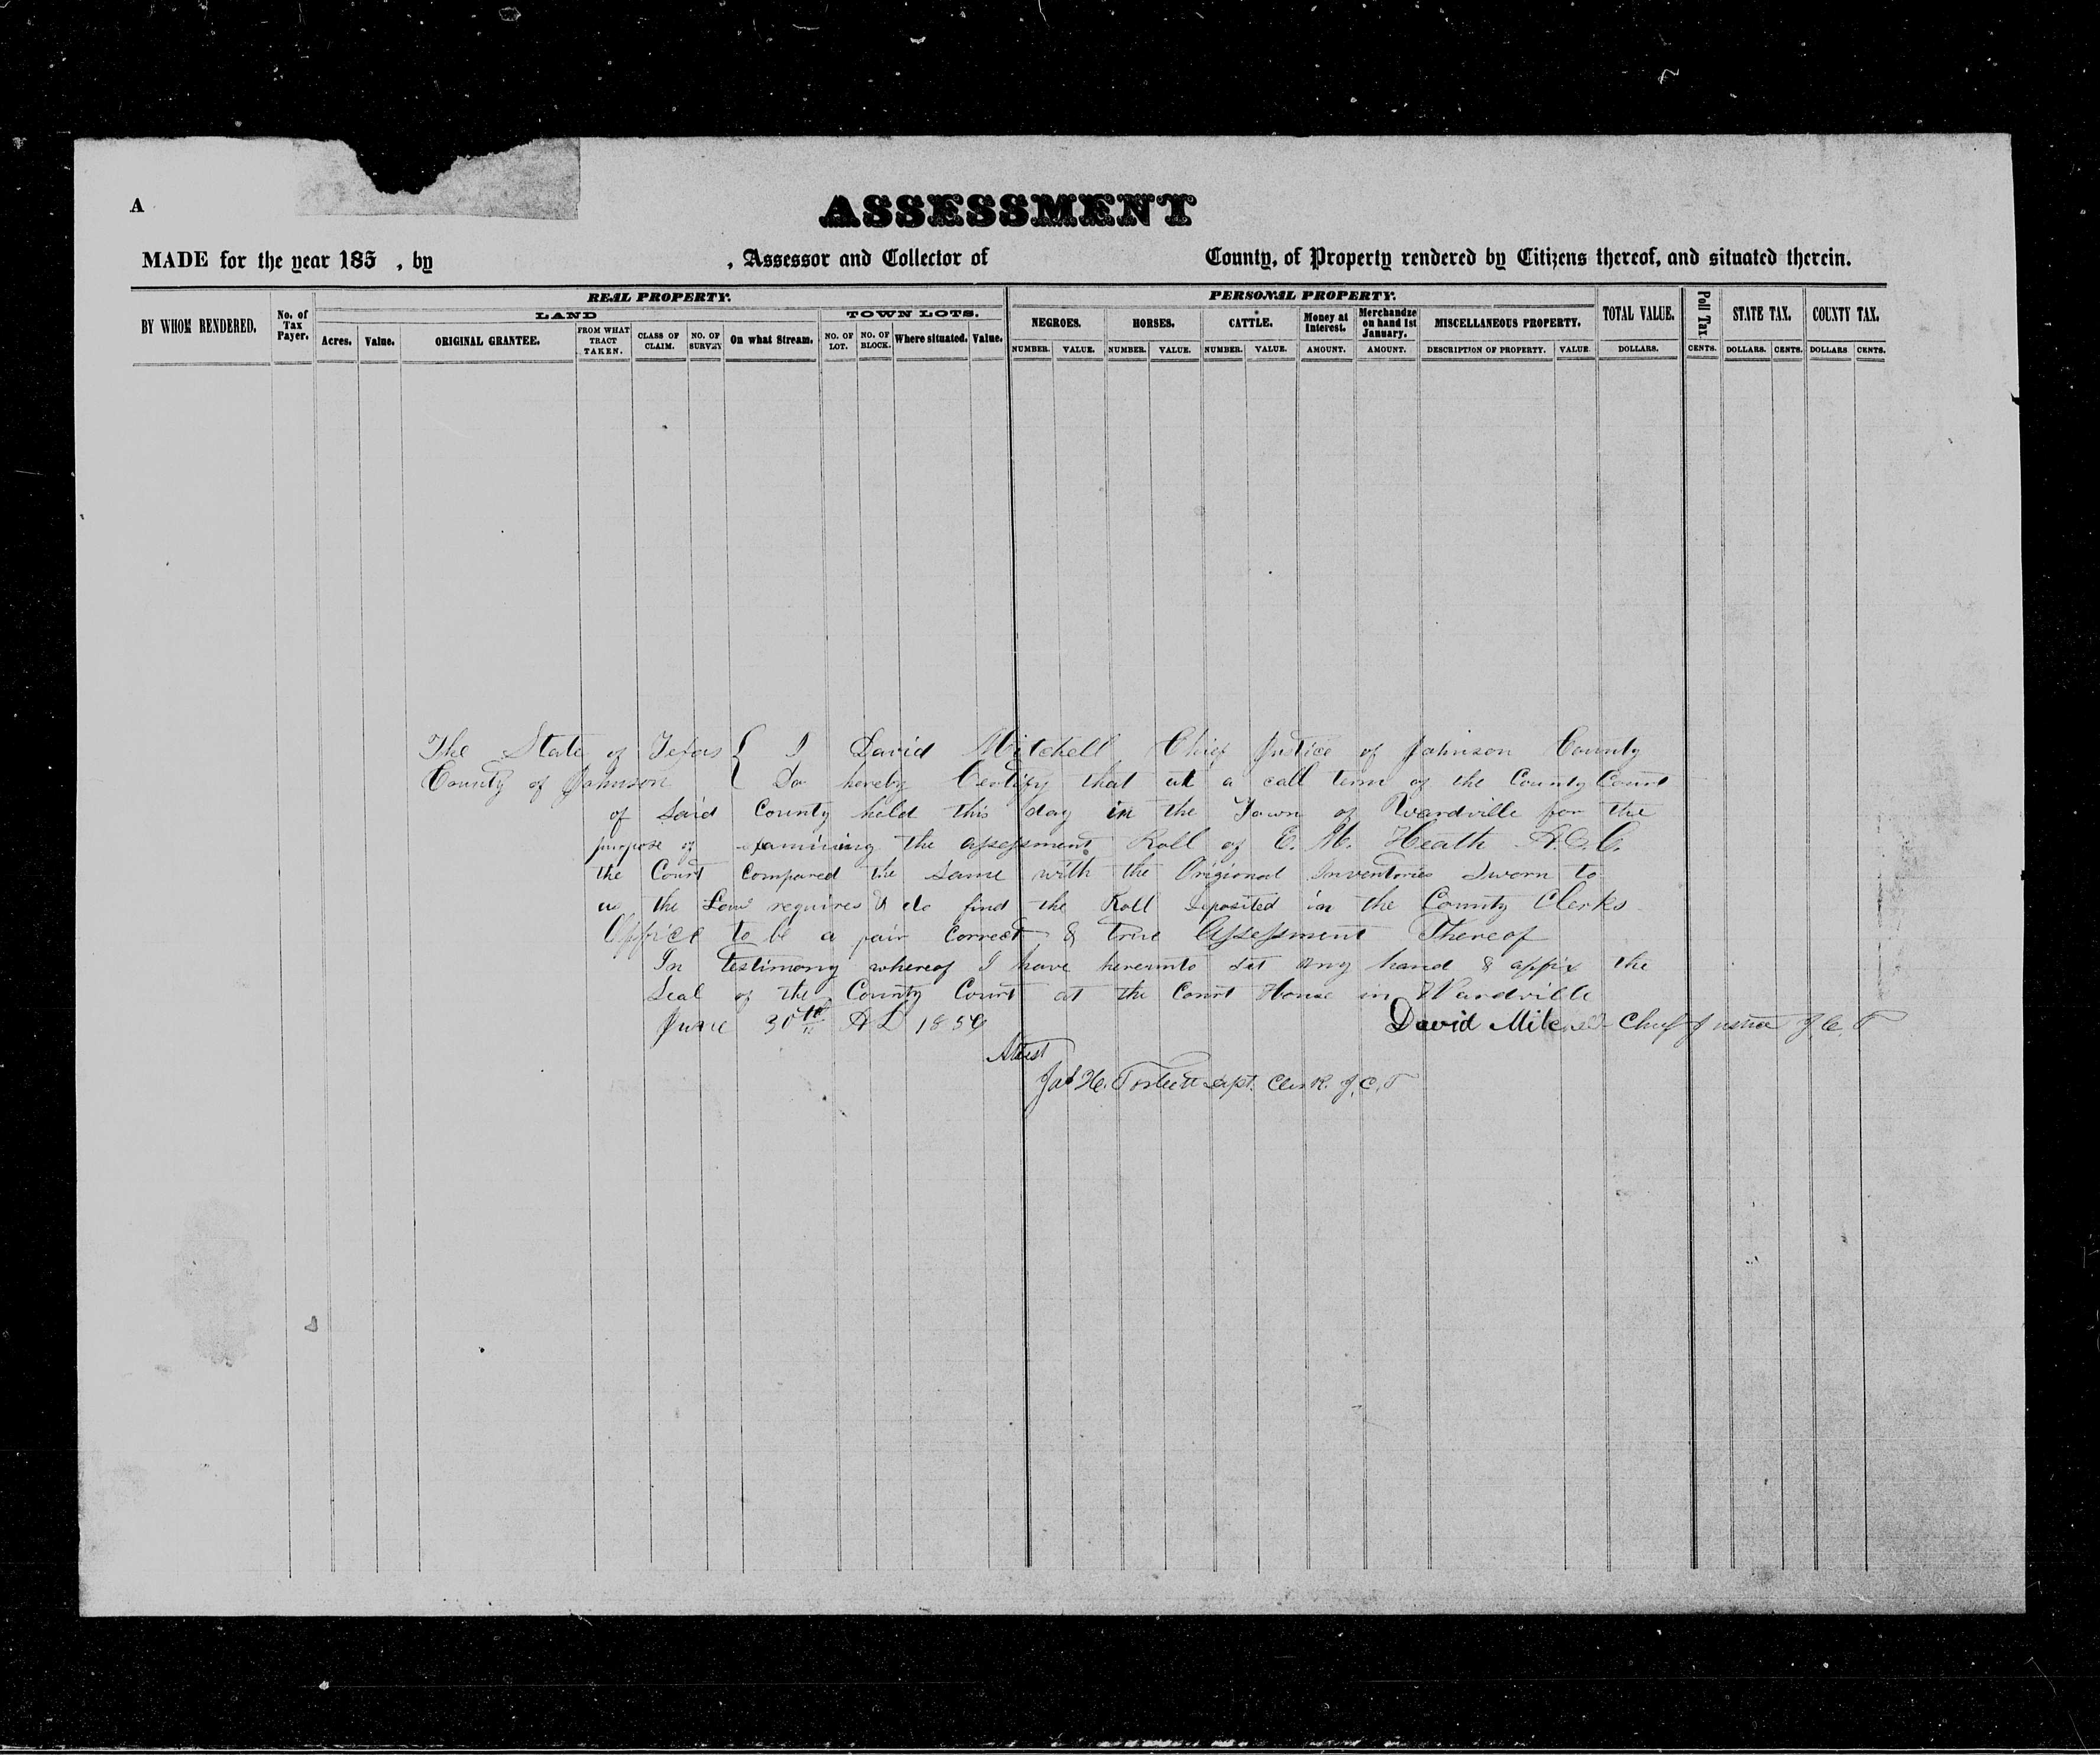 A
ASSESSMENT
MADE for the year 185 , by , Assessor and Collector of County, of Property rendered by Citizens thereof, and situated therein.
REAL PROPERTY. PERSONAL PROPERTY.
BY WHOM RENDERED. No. of Tax Payer. LAND TOWN LOTS. NEGROES. HORSES. CATTLE. Money at Interest. Merchandze on hand 1st January. MISCELLANEOUS PROPERTY. TOTAL VALUE. Poll Tax STATE TAX. COUNTY TAX.
Acres. Value. ORIGINAL GRANTEE. FROM WHAT TRACT TAKEN. CLASS OF CLAIM. NO. OF SURVEY On what Stream. NO. OF LOT. NO. OF BLOCK. Where situated. Value.
NUMBER. VALUE. NUMBER. VALUE. NUMBER. VALUE. AMOUNT. AMOUNT. DESCRIPTION OF PROPERTY. VALUE. DOLLARS. CENTS. DOLLARS. CENTS. DOLLARS CENTS.
The State of Texas { I David Mitchell Chief Justice of Johnson County
County of Johnson { Do hereby Certify that at a call term of the County Court
of Said County held this day in the Town of Wardville for the
purpose of examining the assessment Roll of E. M. Heath A.&C.
the Court Compared the Same with the Origional Inventories Sworn to
as the Law requires & do find the Roll deposited in the County Clerks
Office to be a fair Correct & true Assessment Thereof
In testimony whereof I have hereunto set my hand & affix the
Seal of the County Court at the Court House in Wardville
June 30th AD 1856 David Mitchell Chief Justice J.C.T
Attest
H. Dept. Clerk J.C.T